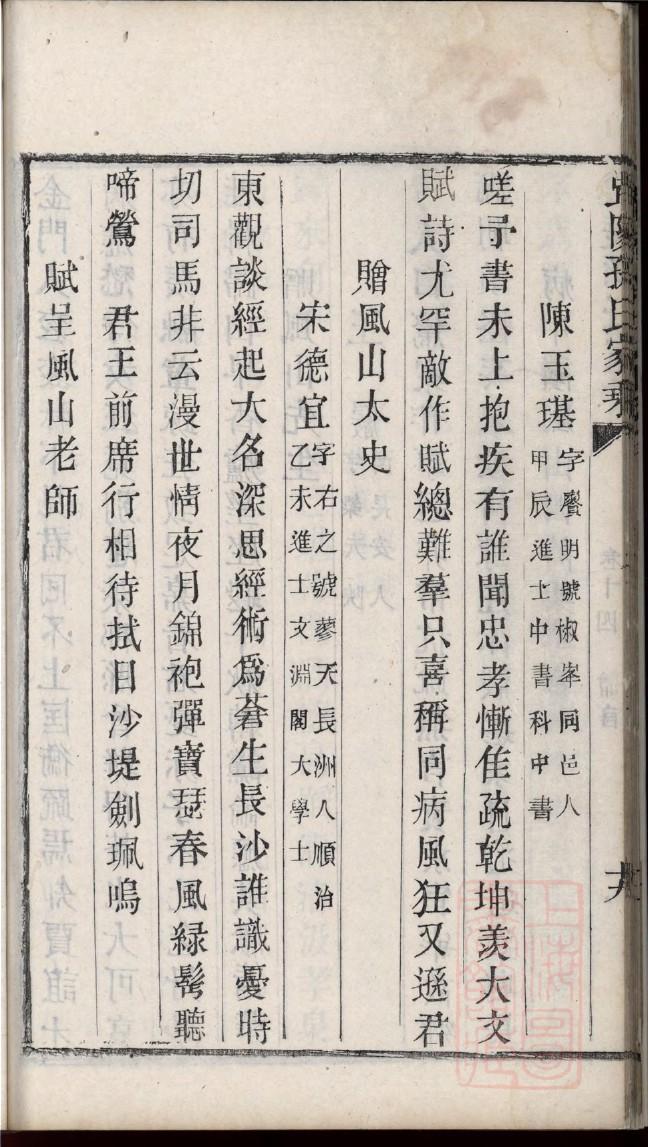 孫氏家乘
陳玉璂字賡明號椒峯同邑人
甲辰進士中書科中書
嗟予書未上抱疾有誰聞忠孝慚隹疏乾坤羡大文
賦詩尤罕敵作賦總難羣只喜稱同病風狂又遜君
贈風山太史
宋德宜字右之號蓼天長洲人順治
乙未進士文淵閣大學士
東觀談經起大名深思經術爲蒼生長沙誰識憂時
切司馬非云漫世情夜月錦袍彈寶瑟春風緑髩聽
啼鶯 君王前席行相待拭目沙堤劍珮鳴
賦呈風山老師